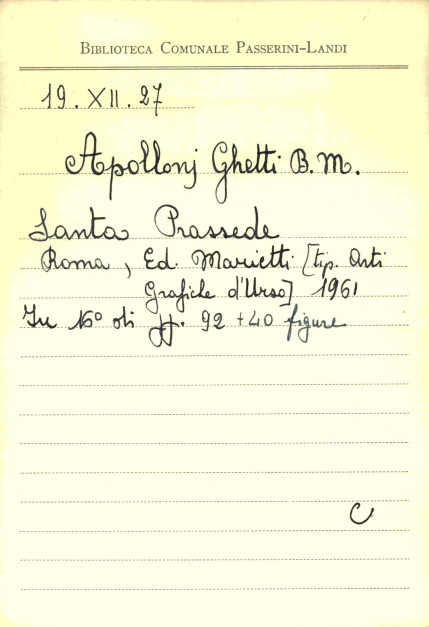 BIBLIOTECA COMUNALE PASSERINI-LANDI
19.XII.27
Apollonj Ghetti B.M.
Santa Prassede
Roma, Ed. Marietti [tip. Arti
Grafiche d'Urso] 1961
In 16° di pp. 92 +40 figure
C